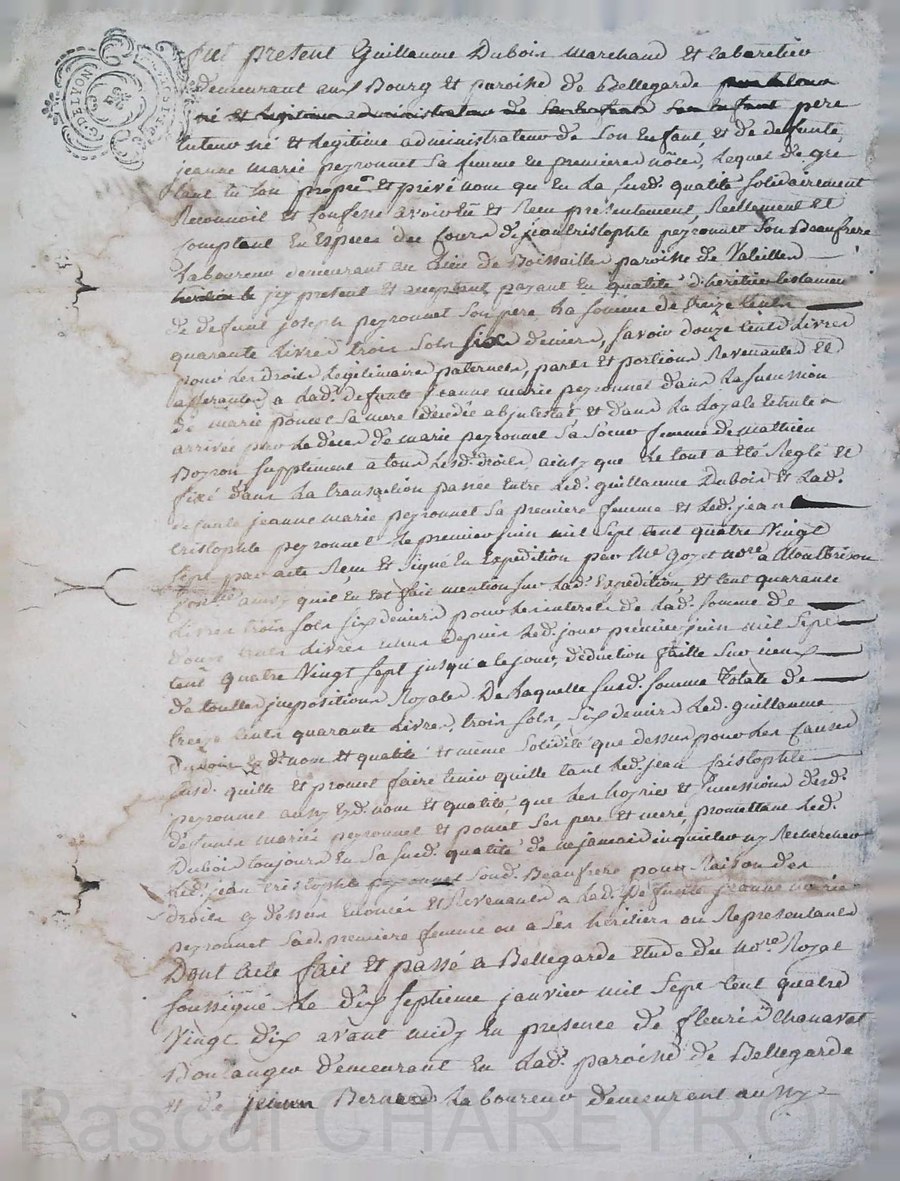 G. DE LYON
fut present Guillaume Dubois marchand et cabaretier
demeurant aux Bourg et paroisse de Bellegarde
né et legitime administrateur de son enfant pere
tuteur né et legitime administrateur de son enfant, et de defunte
jeanne marie peyronnet sa femme en premiere nôce, lequel de gré
tant en son propre et privé nom que en la susd. qualité solidairement
Reconnoit et confesse avoir eû et Recu presentement, Reellement et
comptant en Especes du cours de jean cristophle peyronnet son Beaufrere
laboureur demeurant au lieu de Boissailles paroisse de Valeilles
icy present et aceptant payant en qualité d'heritier testamen
de defunt joseph peyronnet son pere la somme de treize cents
quarante livres trois sols six deniers, savoir douze cents livres
pour les droits legitimaire paternels, parts et portions Revenantes et
afferantes a lad. defunte jeanne marie peyronnet dans la succession
de marie poncet sa mere décédée abjntestat et dans la Royale echute
arrivée par le deces de marie peyronnet sa soeur femme de mathieu
Boyron supplement a tous lesd. droits, ainsy que le tout a été Reglé et
fixé dans la transaction passée entre led. guillaume Dubois et lad.
defunte jeanne marie peyronnet sa premiere femme et led. jean
cristophle peyronnet le premier juin mil sept cent quatre Vingt
sept par acte Recu et signé en Expedition par Me goyet nore a Montbrison
ainsy quil en est fait mention sur lad. Expedition, et cent quarante
livres trois sols six deniers pour les interets de lad. somme de
douze cents livres courus depuis led. jour premier juin mil sept
cent quatre Vingt sept jusqu'a ce jour, deduction faitte sur iceux
de touttes jmpositions Royales De laquelle susd. somme totale de
treize cents quarante livres, trois sols, six deniers led. guillaume
Dubois ez d. nom et qualité et même solidité que dessus pour les causes
susd. quitte et promet faire tenir quitte tant led. jean cristophle
peyronnet aux ezd. nom et qualité que les hoyries et successions desd.
defunts mariés peyronnet et poncet ses pere et mere, promettant led.
Dubois toujours en sa susd. qualité de ne jamais inquieter ny Rechercher
led. jean cristophle peyronnet sond. Beaufrere pour Raison des
droits cy dessus Enoncés et Revenants a lad. defunte jeanne marie
peyronnet sad. premiere femme ou a ses heritiers ou Representants
Dont acte fait et passé a Bellegarde etude du nore Royal
soussigné le dix septieme janvier mil sept cent quatre
Vingt dix avant midy en presence de fleuri Chanavat
Boulanger demeurant en lad. paroisse de Bellegarde
et de jean Bernard laboureur demeurant aussy
Pascal CHAREYRON